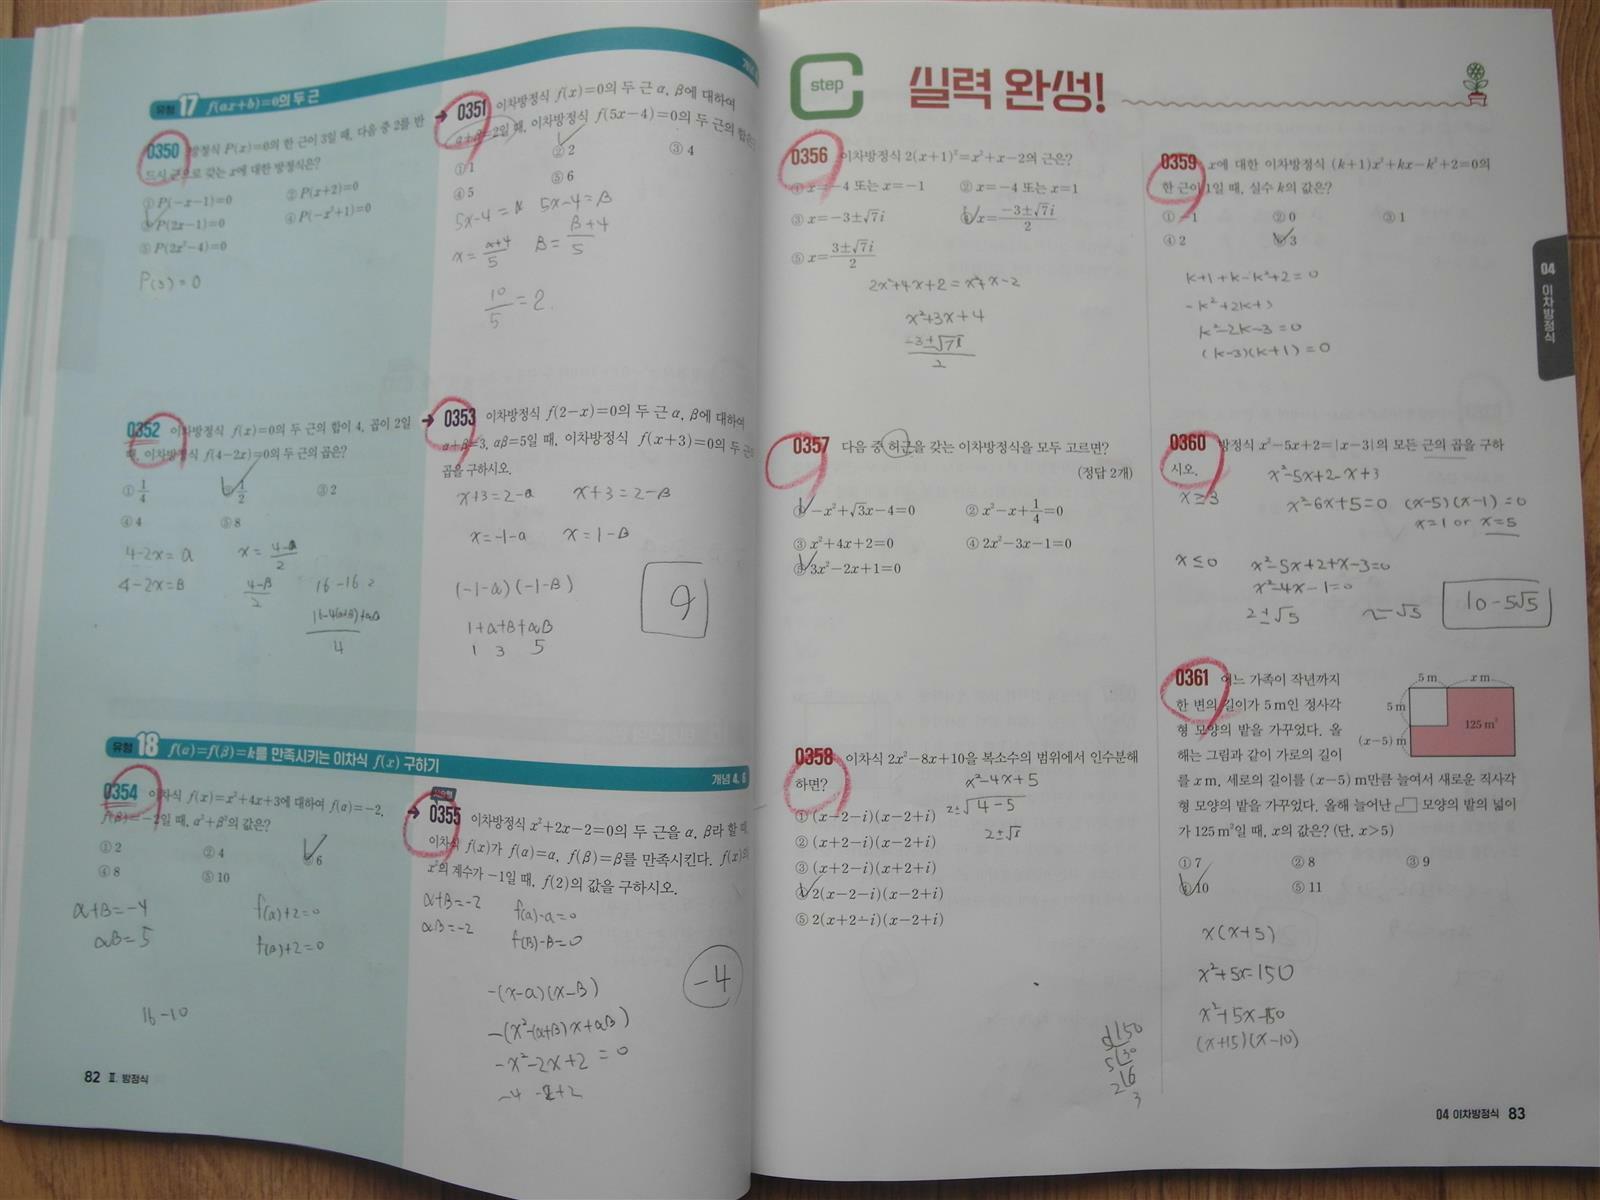 유형 17 f(ax+b)=0의 두 근
0350 방정식 P(x)=0의 한 근이 3일 때, 다음 중 2를 반
드시 근으로 갖는 x에 대한 방정식은?
① P(-x-1)=0 ② P(x+2)=0
③ P(2x-1)=0 ④ P(-x²+1)=0
⑤ P(2x²-4)=0
P(3)=0
→ 0351 이차방정식 f(x)=0의 두 근 α, β에 대하여
α+β=2일 때, 이차방정식 f(5x-4)=0의 두 근의 합은
① 1 ② 2 ③ 4
④ 5 ⑤ 6
5x-4=α 5x-4=β
x=(α+4)/5 β=(β+4)/5
10/5=2.
0352 이차방정식 f(x)=0의 두 근의 합이 4, 곱이 2일
때, 이차방정식 f(4-2x)=0의 두 근의 곱은?
① 1/4 ② 1/2 ③ 2
④ 4 ⑤ 8
4-2x=α x=(4-α)/2
4-2x=β (4-β)/2 16-16 2
(16-4(α+β)+αβ)/4
→ 0353 이차방정식 f(2-x)=0의 두 근 α, β에 대하여
α+β=3, αβ=5일 때, 이차방정식 f(x+3)=0의 두 근
곱을 구하시오.
x+3=2-α x+3=2-β
x=-1-α x=1-β
(-1-α)(-1-β)
1+α+β+αβ
1 3 5
9
유형 18 f(α)=f(β)=k를 만족시키는 이차식 f(x) 구하기
개념 4, 6
0354 이차식 f(x)=x²+4x+3에 대하여 f(α)=-2,
f(β)=-2일 때, α²+β²의 값은?
① 2 ② 4 ③ 6
④ 8 ⑤ 10
α+β=-4 f(α)+2=0
αβ=5 f(β)+2=0
16-10
→ 0355 이차방정식 x²+2x-2=0의 두 근을 α, β라 할 때,
이차식 f(x)가 f(α)=α, f(β)=β를 만족시킨다. f(x)의
x²의 계수가 -1일 때, f(2)의 값을 구하시오.
α+β=-2 f(α)-α=0
αβ=-2 f(β)-β=0
-(x-α)(x-β)
-(x²-(α+β)x+αβ)
-x²-2x+2=0
-4
82 Ⅱ. 방정식
C step 실력 완성!
0356 이차방정식 2(x+1)²=x²+x-2의 근은?
① x=-4 또는 x=-1 ② x=-4 또는 x=1
③ x=-3±√7i ④ x=(-3±√7i)/2
⑤ x=(3±√7i)/2
2x²+4x+2=x²+x-2
x²+3x+4
(-3±√7i)/2
0357 다음 중 허근을 갖는 이차방정식을 모두 고르면?
(정답 2개)
① -x²+√3x-4=0 ② x²-x+1/4=0
③ x²+4x+2=0 ④ 2x²-3x-1=0
⑤ 3x²-2x+1=0
0358 이차식 2x²-8x+10을 복소수의 범위에서 인수분해
하면?
x²-4x+5
2±√4-5
2±√i
① (x-2-i)(x-2+i)
② (x+2-i)(x-2+i)
③ (x+2-i)(x+2+i)
④ 2(x-2-i)(x-2+i)
⑤ 2(x+2-i)(x-2+i)
0359 x에 대한 이차방정식 (k+1)x²+kx-k²+2=0의
한 근이 1일 때, 실수 k의 값은?
① -1 ② 0 ③ 1
④ 2 ⑤ 3
k+1+k-k²+2=0
-k²+2k+3
k²-2k-3=0
(k-3)(k+1)=0
0360 방정식 x²-5x+2=|x-3|의 모든 근의 곱을 구하
시오.
x²-5x+2-x+3
x≥3 x²-6x+5=0 (x-5)(x-1)=0
x=1 or x=5
x≤0 x²-5x+2+x-3=0
x²-4x-1=0
2±√5 2-√5 10-5√5
0361 어느 가족이 작년까지
한 변의 길이가 5 m인 정사각
형 모양의 밭을 가꾸었다. 올
해는 그림과 같이 가로의 길이
를 x m, 세로의 길이를 (x-5) m만큼 늘여서 새로운 직사각
형 모양의 밭을 가꾸었다. 올해 늘어난 모양의 밭의 넓이
가 125 m²일 때, x의 값은? (단, x>5)
5 m x m
5 m
125 m²
(x-5) m
① 7 ② 8 ③ 9
④ 10 ⑤ 11
x(x+5)
x²+5x=150
x²+5x-150
(x+15)(x-10)
04 이차방정식
04 이차방정식 83